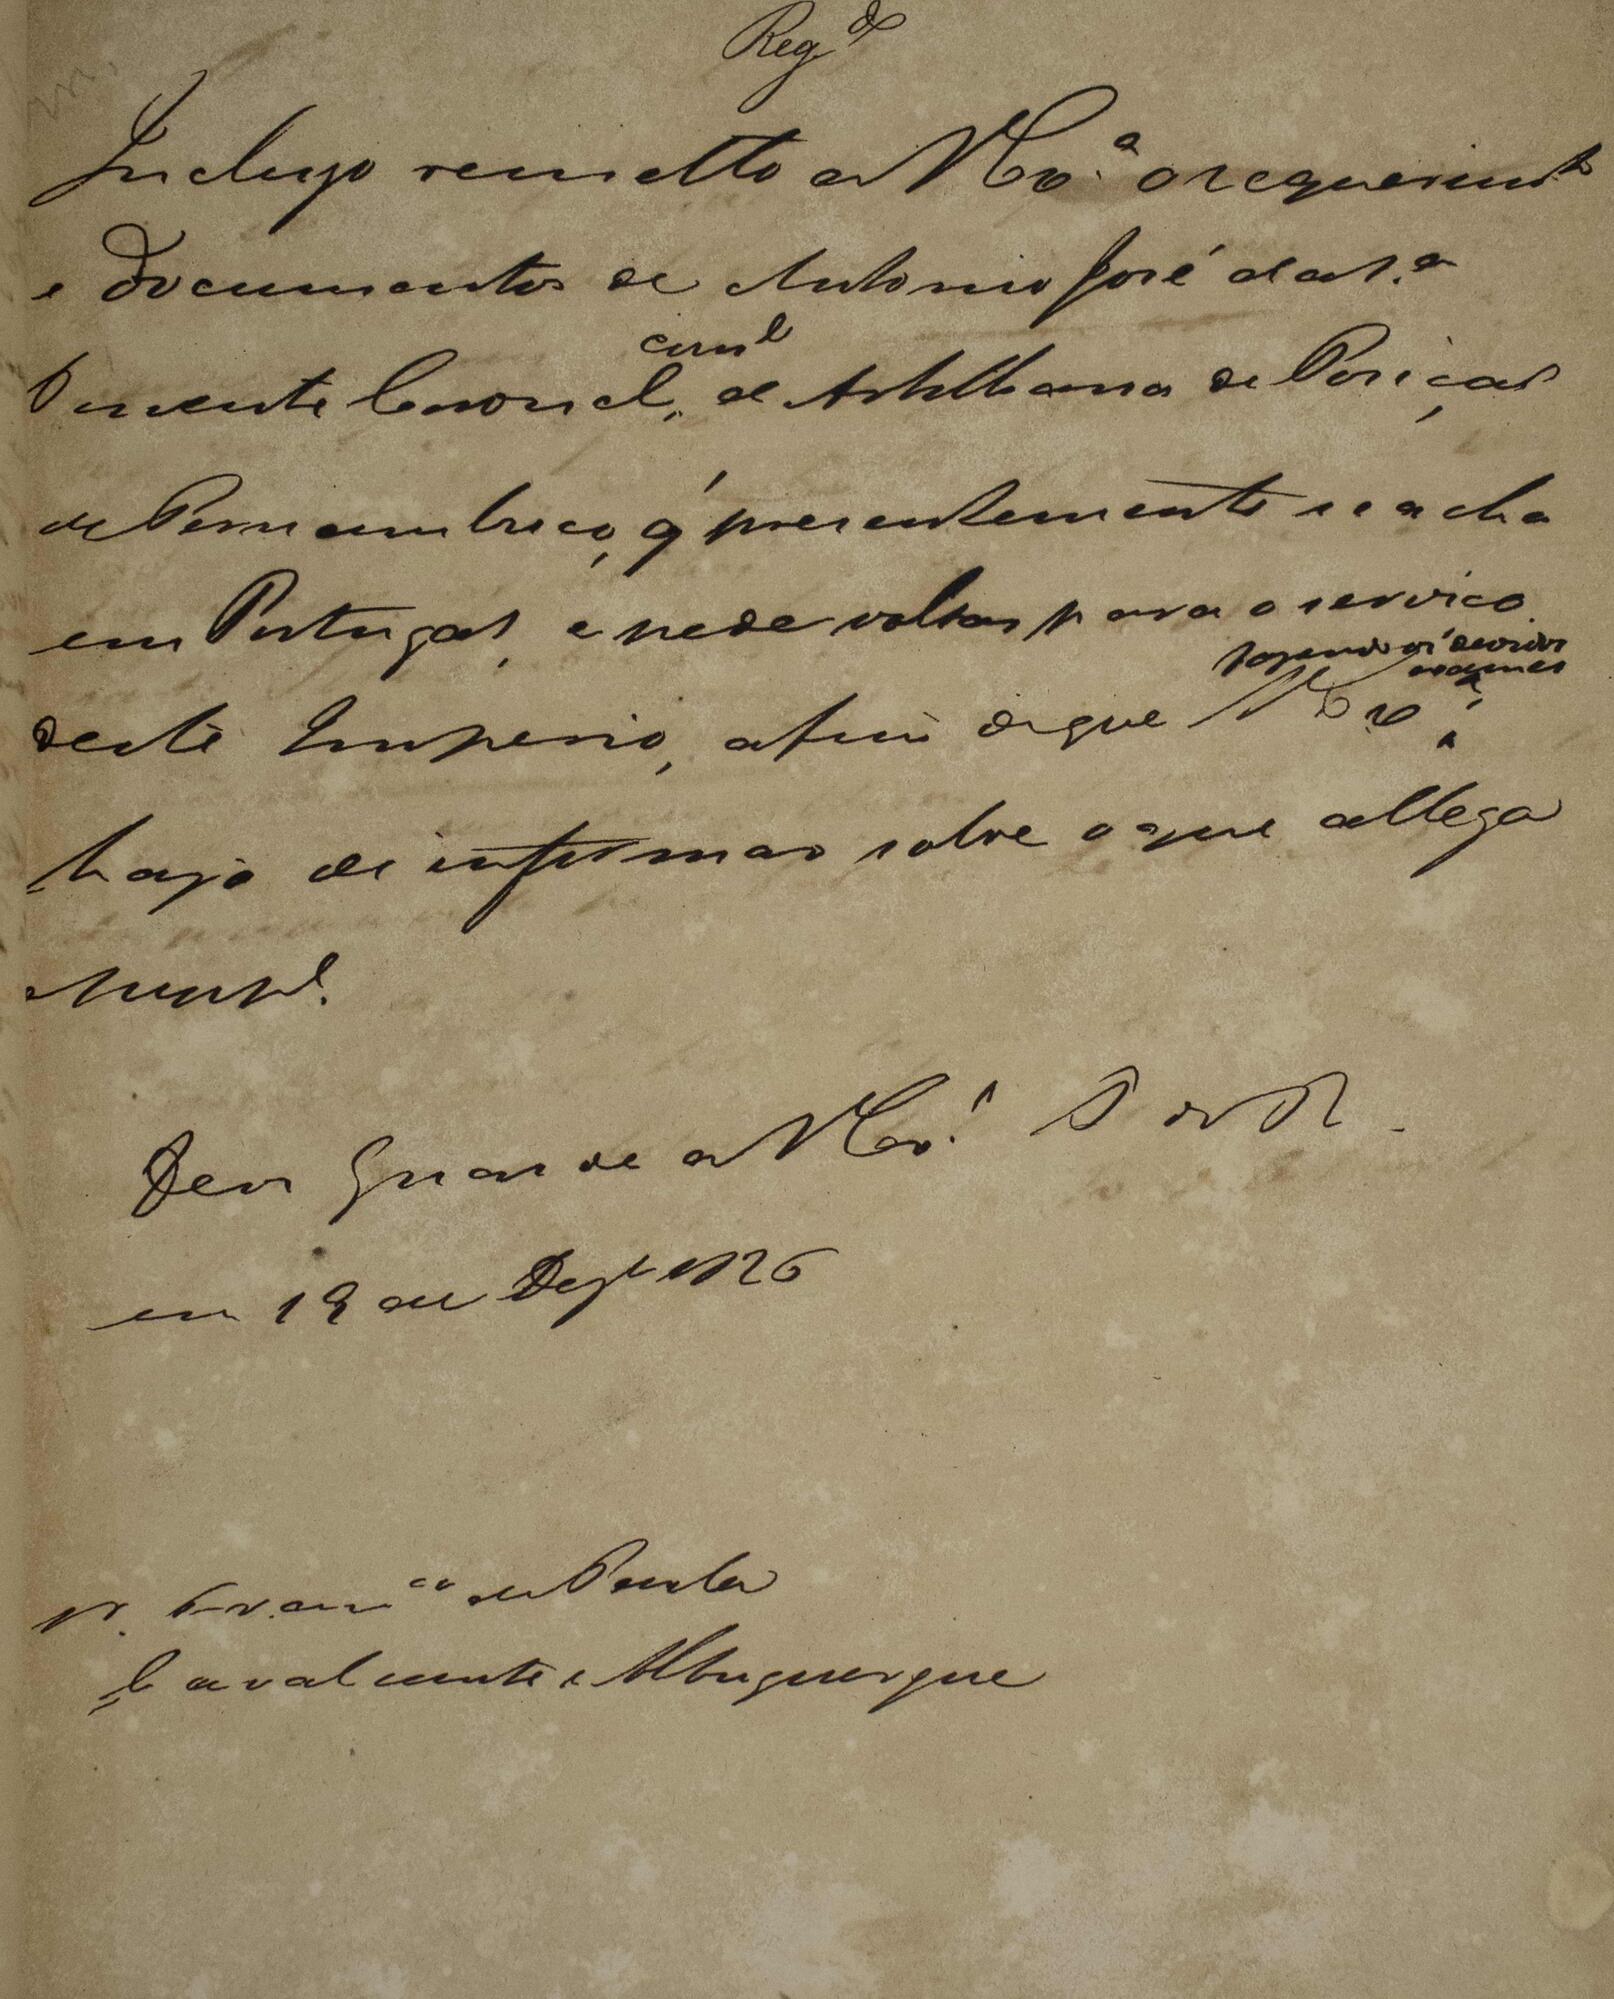 Reg.do
Incluzo remetto a V Ex.ª o requerimto
e documentos de Antonio José da S.ª
Tenente Coronel, de Artilharia de Poziçaõ
de Pernambuco, q' presentemente se acha
em Portugal, e pede voltar para o serviço
fazendo os devidos
exames
deste Imperio, afim de que V Ex.ª
haja de informar sobre o que allega
o supp.e
Deos Guarde a V Ex.ª P do R.
em 19 de Dezbro 1826
Sr. Franco de Paula
Cavalcante e Albuquerque